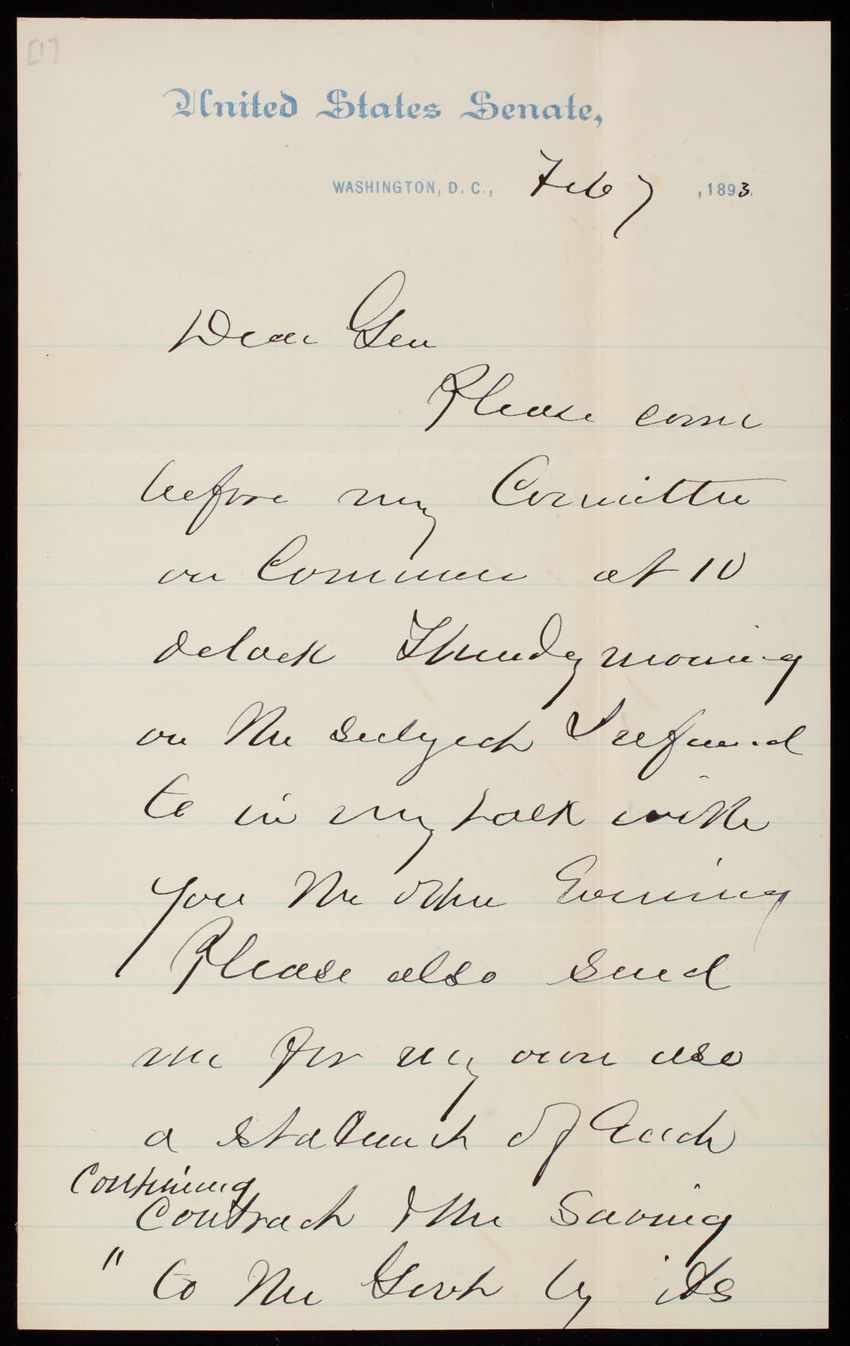 [1]
United States Senate,
WASHINGTON, D. C., Feb 7, 1893.
Dear Gen
Please come
before my Committee
on Commerce at 10
oclock Thursday morning
on the subject I referred
to in my talk with
you the other Evening
Please also send
me for my own use
a statement of Each
Continuing
Contract & the Saving
" to the Govt by its